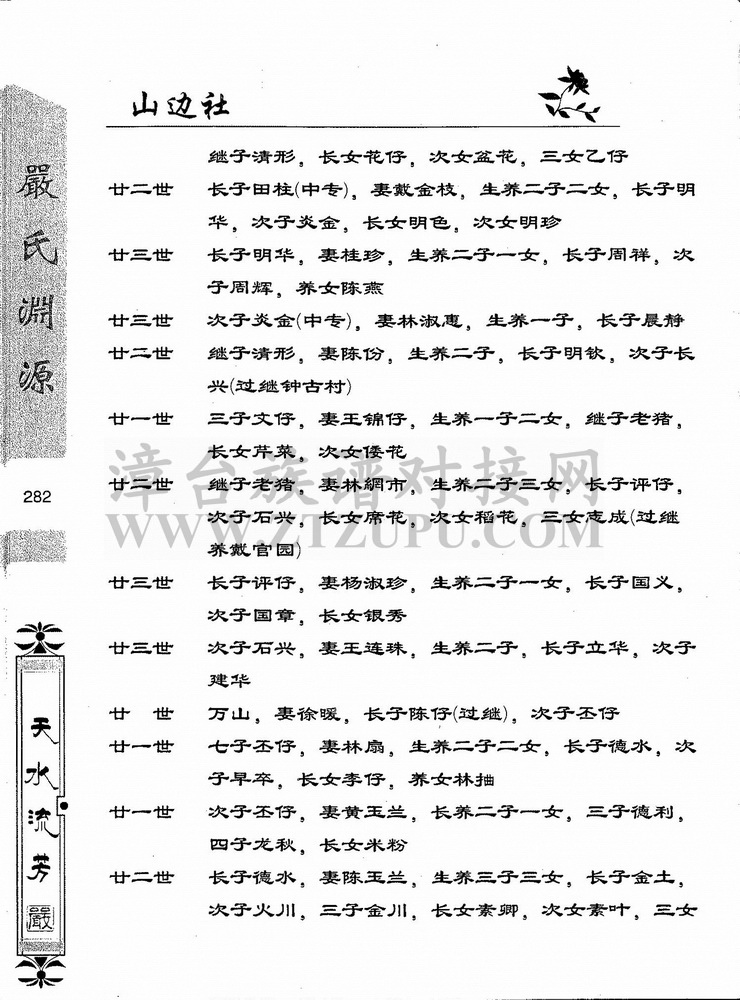 山边社
嚴氏淵源
282
天水流芳
嚴
继子清形，长女花仔，次女盆花，三女乙仔
廿二世 长子田柱(中专)，妻戴金枝，生养二子二女，长子明
华，次子炎金，长女明色，次女明珍
廿三世 长子明华，妻桂珍，生养二子一女，长子周祥，次
子周辉，养女陈燕
廿三世 次子炎金(中专)，妻林淑惠，生养一子，长子晨静
廿二世 继子清形，妻陈份，生养二子，长子明钦，次子长
兴(过继钟古村)
廿一世 三子文仔，妻王锦仔，生养一子二女，继子老猪，
长女芹菜，次女倭花
廿二世 继子老猪，妻林綢市，生养二子三女，长子评仔，
次子石兴，长女席花，次女稻花，三女志成(过继
养戴官园)
廿三世 长子评仔，妻杨淑珍，生养二子一女，长子国义，
次子国章，长女银秀
廿三世 次子石兴，妻王连珠，生养二子，长子立华，次子
建华
廿 世 万山，妻徐暖，长子陈仔(过继)，次子丕仔
廿一世 七子丕仔，妻林扇，生养二子二女，长子德水，次
子早卒，长女李仔，养女林抽
廿一世 次子丕仔，妻黄玉兰，长养二子一女，三子德利，
四子龙秋，长女米粉
廿二世 长子德水，妻陈玉兰，生养三子三女，长子金土，
次子火川，三子金川，长女素卿，次女素叶，三女
漳台族谱对接网
WWW.ZTZUPU.COM